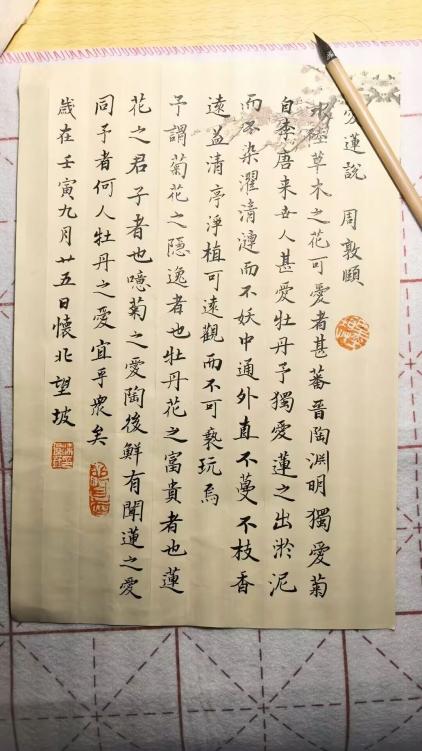 愛蓮說 周敦頤
水陸草木之花可愛者甚蕃晉陶淵明獨愛菊
自李唐来世人甚愛牡丹予獨愛蓮之出淤泥
而不染濯清漣而不妖中通外直不蔓不枝香
遠益清亭淨植可遠觀而不可褻玩焉
予謂菊花之隱逸者也牡丹花之富貴者也蓮
花之君子者也噫菊之愛陶後鮮有聞蓮之愛
同予者何人牡丹之愛宜乎衆矣
歲在壬寅九月廿五日懷北望坡